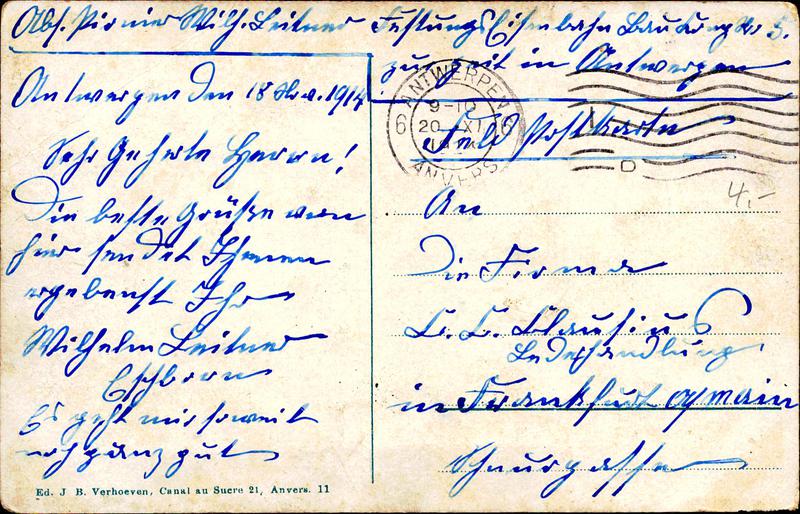 Abs. Pionier Wilh. Leitner Festungs Eisenbahn Bau Komp Nr 5.
zur Zeit in Antwerpen
Antwerpen den 18 Nov. 1914
Sehr Geehrte Herrn!
Die beste Grüße von
hier sendet Ihnen
ergebenst Ihr
Wilhelm Leitner
Eschborn
Es geht mir soweit
noch ganz gut
Ed. J B. Verhoeven, Canal au Sucre 21, Anvers. 11
ANTWERPEN
9-10
6 20 XI 6
ANVERS
Feld Postkarte
4,-
An
Die Firma
C. Clausius
Lederhandlung
in Frankfurt a/main
Schnurgasse